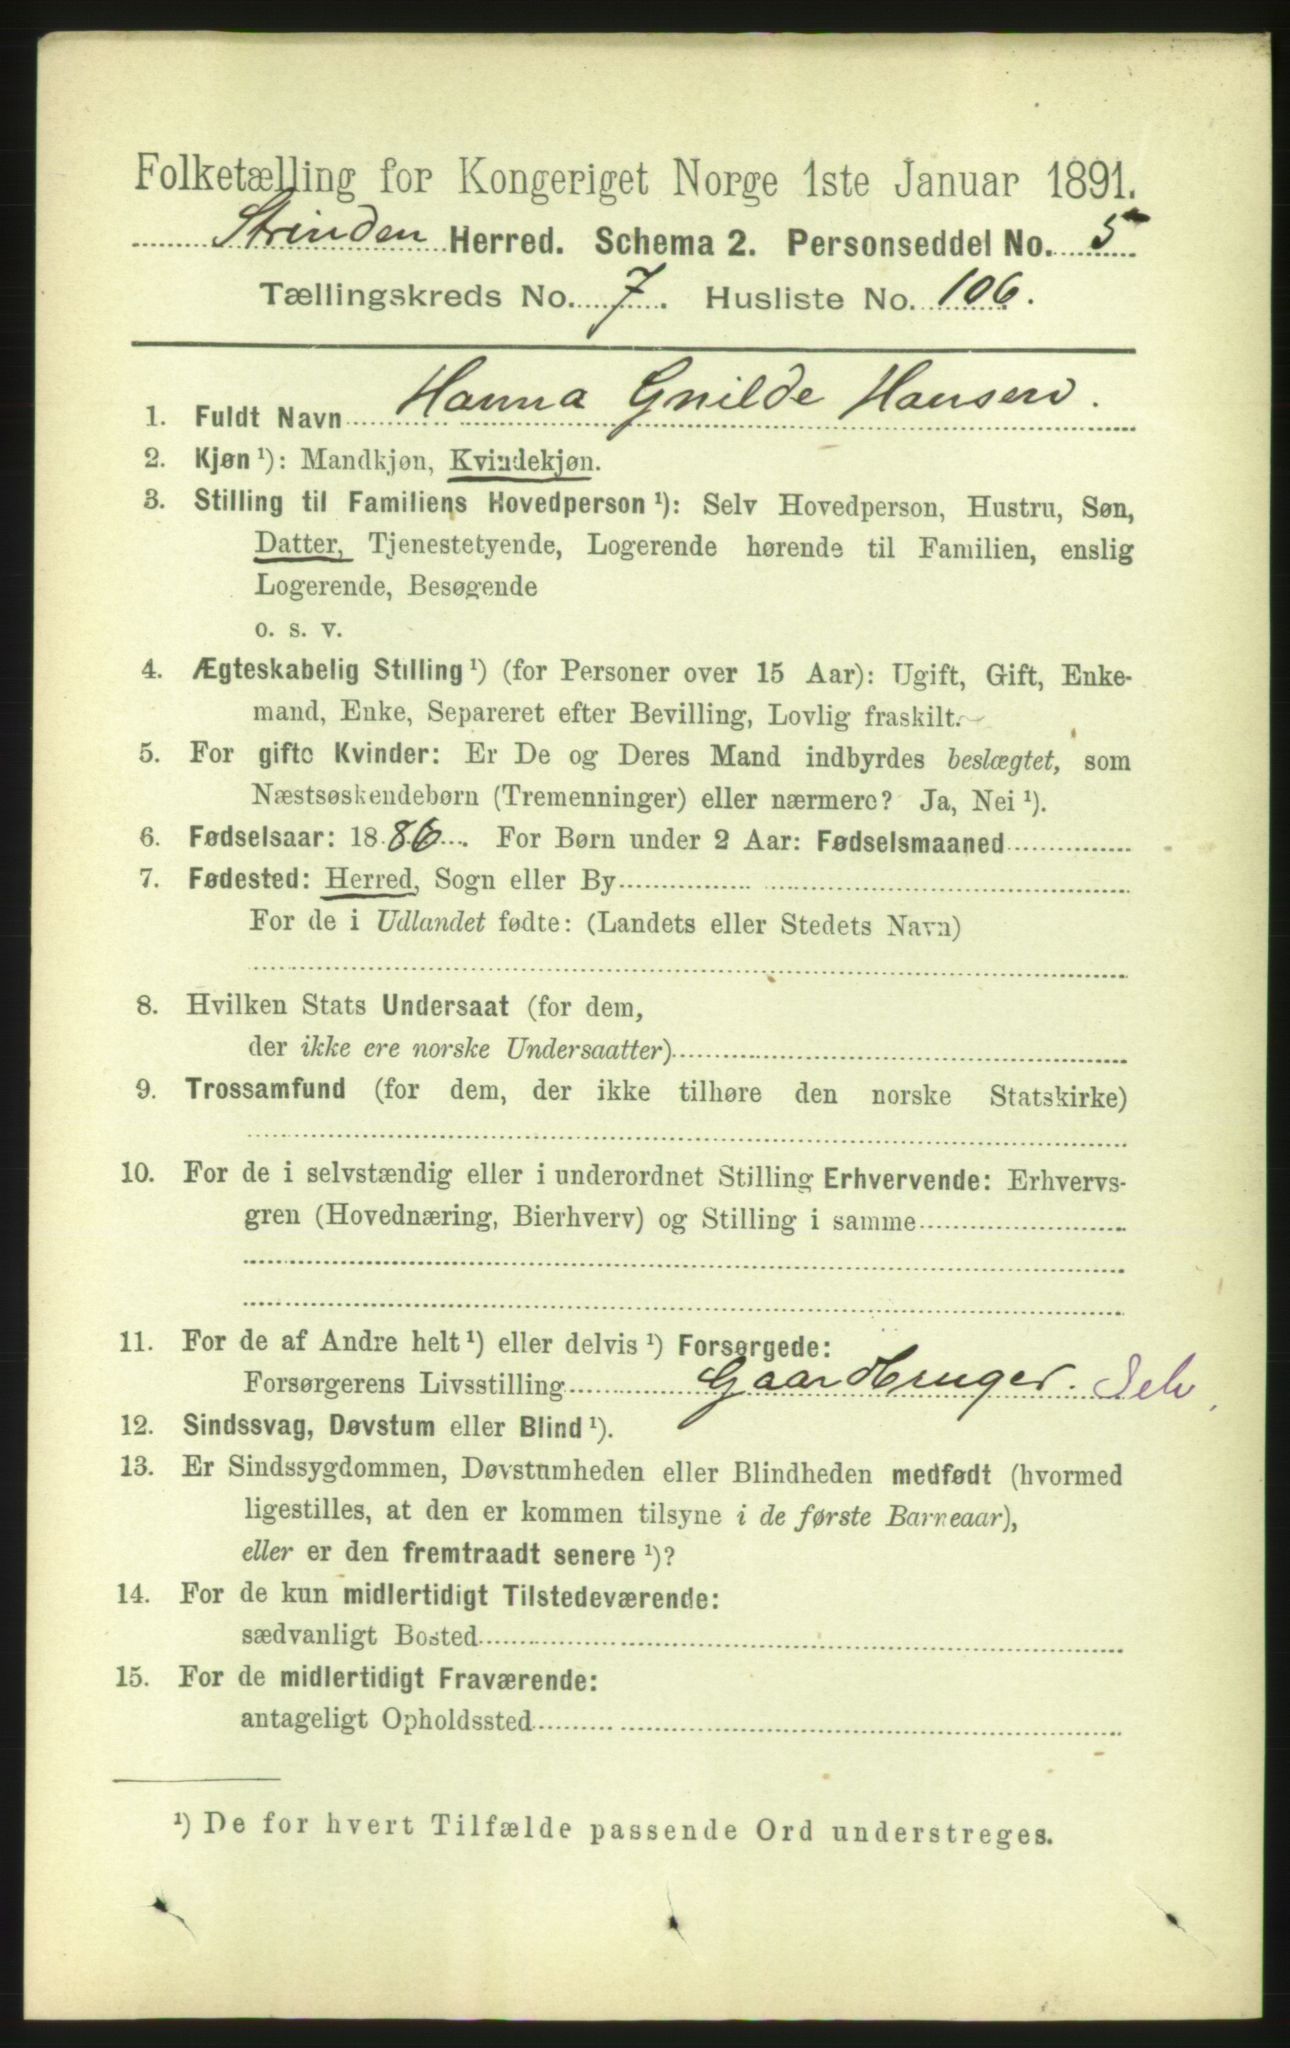 Folketælling for Kongeriget Norge 1ste Januar 1891.
Strinden Herred. Schema 2. Personseddel No. 5
Tællingskreds No. 7. Husliste No. 106.
1. Fuldt Navn Hanna Gnilde Hansen.
2. Kjøn ¹): Mandkjøn, Kvindekjøn.
3. Stilling til Familiens Hovedperson ¹): Selv Hovedperson, Hustru, Søn,
Datter, Tjenestetyende, Logerende hørende til Familien, enslig
Logerende, Besøgende
o. s. v.
4. Ægteskabelig Stilling ¹) (for Personer over 15 Aar): Ugift, Gift, Enke-
mand, Enke, Separeret efter Bevilling, Lovlig fraskilt.
5. For gifte Kvinder: Er De og Deres Mand indbyrdes beslægtet, som
Næstsøskendebørn (Tremenninger) eller nærmere? Ja, Nei ¹).
6. Fødselsaar: 1886. For Børn under 2 Aar: Fødselsmaaned
7. Fødested: Herred, Sogn eller By
For de i Udlandet fødte: (Landets eller Stedets Navn)
8. Hvilken Stats Undersaat (for dem,
der ikke ere norske Undersaatter)
9. Trossamfund (for dem, der ikke tilhøre den norske Statskirke)
10. For de i selvstændig eller i underordnet Stilling Erhvervende: Erhvervs-
gren (Hovednæring, Bierhverv) og Stilling i samme
11. For de af Andre helt ¹) eller delvis ¹) Forsørgede:
Forsørgerens Livsstilling Gaardbruger. Selv
12. Sindssvag, Døvstum eller Blind ¹).
13. Er Sindssygdommen, Døvstumheden eller Blindheden medfødt (hvormed
ligestilles, at den er kommen tilsyne i de første Barneaar),
eller er den fremtraadt senere ¹)?
14. For de kun midlertidigt Tilstedeværende:
sædvanligt Bosted
15. For de midlertidigt Fraværende:
antageligt Opholdssted
¹) De for hvert Tilfælde passende Ord understreges.